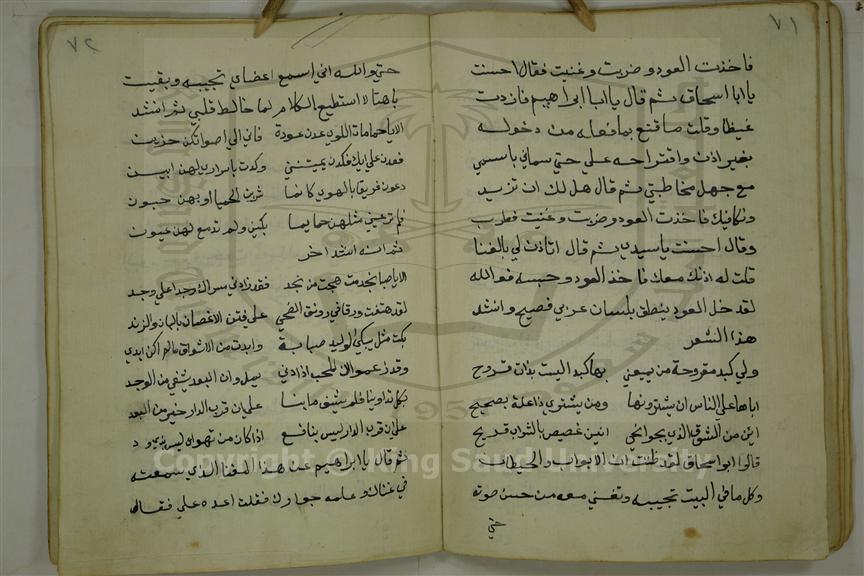 ٧١
فاخذت العود وضربت وغنيت فقال احسنت
يا ابا اسحاق ثم قال يا ابا ابراهيم فازددت
غيظا وقلت ما قنع بما فعله من دخوله
بغير اذن واقتراحه علي حتي سماني باسمي
مع جهل مخاطبتي ثم قال هل لك ان تزيد
ونكافيك فاخذت العود وضربت وغنيت فطرب
وقال احسنت ياسيدي ثم قال اتاذن لي بالغنا
قلت له اذنك معك فاخذ العود وحبسه فوالله
لقد خل العود ينطق بلسان عربي فصيح وانشد
هذا الشعر
ولي كبد مقروحة من يبيعني بها كبد اليست بذات قروح
اباها علي الناس ان يشترونها ومن يشتري ذا علة بصحيح
ائن من الشوق الذي بجوانحي انين غصيص بالشراب قريح
قالوا ابو اسحاق لقد ظننت ان الابواب والحيطان
وكل ما في البيت تجيبه وتغني معه من حسن صوته
حتي
٧٢
حتي والله اني اسمع اعضاي تجيبه وبقيت
باهتا لا استطيع الكلام لما خالط قلبي ثم انشد
الا يا حمامات اللوي عدن عودة فاني الي اصواتكن حزين
فعدن علي ايك فكدن يميتنني وكدت باسراري لهن ابين
دعون فريقا بالهوي كانما شربن الحميا او بهن جنون
فلم ترعيني مثلهن حمايما بكين ولم تدمع لهن عيون
ثم انه انشد اخر
الا يا صبا نجد مت هجت من نجد فقد زادني مسراك وجدا علي وجد
لقد هتفت ورقا في رونق الضحي علي فنن الاغصان بالبان والرند
بكت مثل يبكي الوليد صبابة وابدت من الاشواق مالم اكن ابدي
وقد زعموا ان المحب اذا دني يمل وان البعد يشفي من الوجد
بكل تداوينا فلم يشف ما بنا علي ان قرب الدار خير من البعد
علي ان قرب الدار ليس بنافع اذا كان من تهواه ليس بذي ود
ثم قال يا ابراهيم عن هذا الغنا الذي سمعته
في غنائك وعلمه جوارك فقلت اعده علي فقال
Copyright © King Saud University
1957